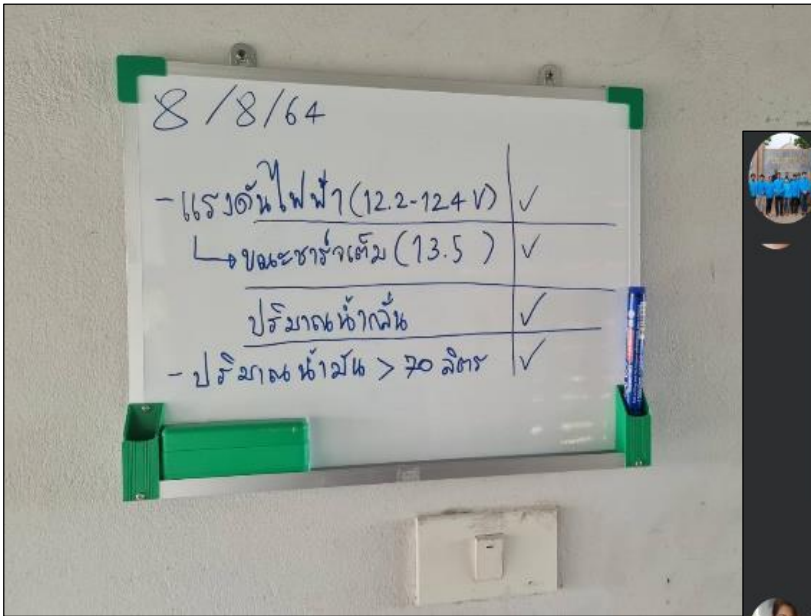 8/8/64
- แรงดันไฟฟ้า (12.2-12.4 V) ✓
↳ ขณะชาร์จเต็ม (13.5 ) ✓
ปริมาณน้ำกลั่น ✓
- ปริมาณน้ำมัน > 70 ลิตร ✓